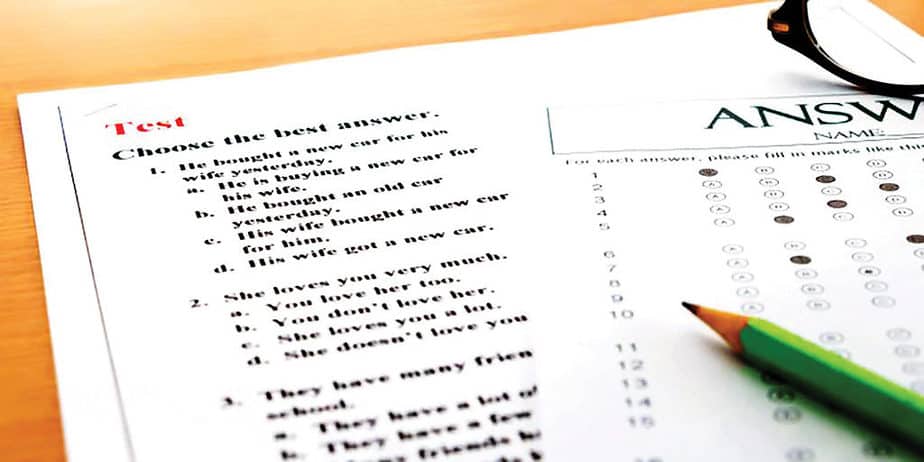 Test
Choose the best answer.
1. He bought a new car for his
wife yesterday.
a. He is buying a new car for
his wife.
b. He bought an old car
yesterday.
c. His wife bought a new car
for him.
d. His wife got a new car.
2. She loves you very much.
a. You love her too.
b. You don't love her.
c. She loves you a lot.
d. She doesn't love you
3. They have many frien
school.
a. They have a lot of
b. They have a few
friends
ANSW
NAME
For each answer, please fill in marks like
1
2
3
4
5
6
7
8
9
10
11
12
13
14
15